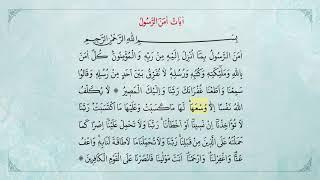 آيَاتُ اٰمَنَ الرَّسُولُ
بِسْمِ اللّٰهِ الرَّحْمٰنِ الرَّحِيمِ
اٰمَنَ الرَّسُولُ بِمَٓا اُنْزِلَ اِلَيْهِ مِنْ رَبِّه۪ وَ الْمُؤْمِنُونَۜ كُلٌّ اٰمَنَ
بِاللّٰهِ وَمَلٰٓئِكَتِه۪ وَكُتُبِه۪ وَرُسُلِه۪ۜ لَا نُفَرِّقُ بَيْنَ اَحَدٍ مِنْ رُسُلِه۪ۜ وَقَالُوا
سَمِعْنَا وَاَطَعْنَا غُفْرَانَكَ رَبَّنَا وَاِلَيْكَ الْمَص۪يرُ ۞ لَا يُكَلِّفُ
اللّٰهُ نَفْسًا اِلَّا وُسْعَهَاۜ لَهَا مَا كَسَبَتْ وَعَلَيْهَا مَا اكْتَسَبَتْۜ رَبَّنَا
لَا تُؤَاخِذْنَٓا اِنْ نَس۪ينَٓا اَوْ اَخْطَأْنَاۚ رَبَّنَا وَلَا تَحْمِلْ عَلَيْنَٓا اِصْرًا كَمَا
حَمَلْتَهُ عَلَى الَّذ۪ينَ مِنْ قَبْلِنَاۚ رَبَّنَا وَلَا تُحَمِّلْنَا مَا لَا طَاقَةَ لَنَا بِه۪ۚ وَاعْفُ
عَنَّا۠ وَاغْفِرْ لَنَا۠ وَارْحَمْنَا۠ اَنْتَ مَوْلٰينَا فَانْصُرْنَا عَلَى الْقَوْمِ الْكَافِر۪ينَ ۞